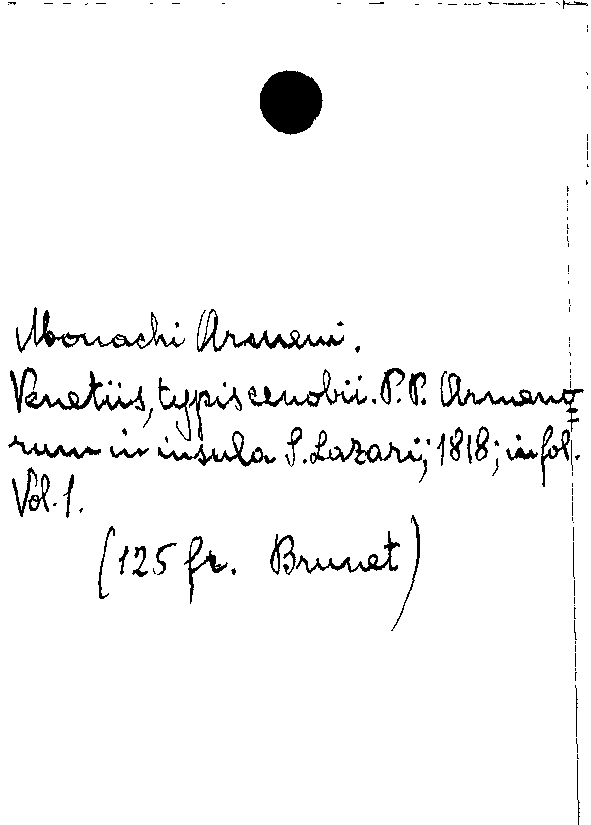 Monachi Armeni.
Venetiis, typis cenobii. P.P. Armeno=
rum in insula S. Lazarij; 1818; in fol.
Vol. 1.
(125 fr. Brunet)